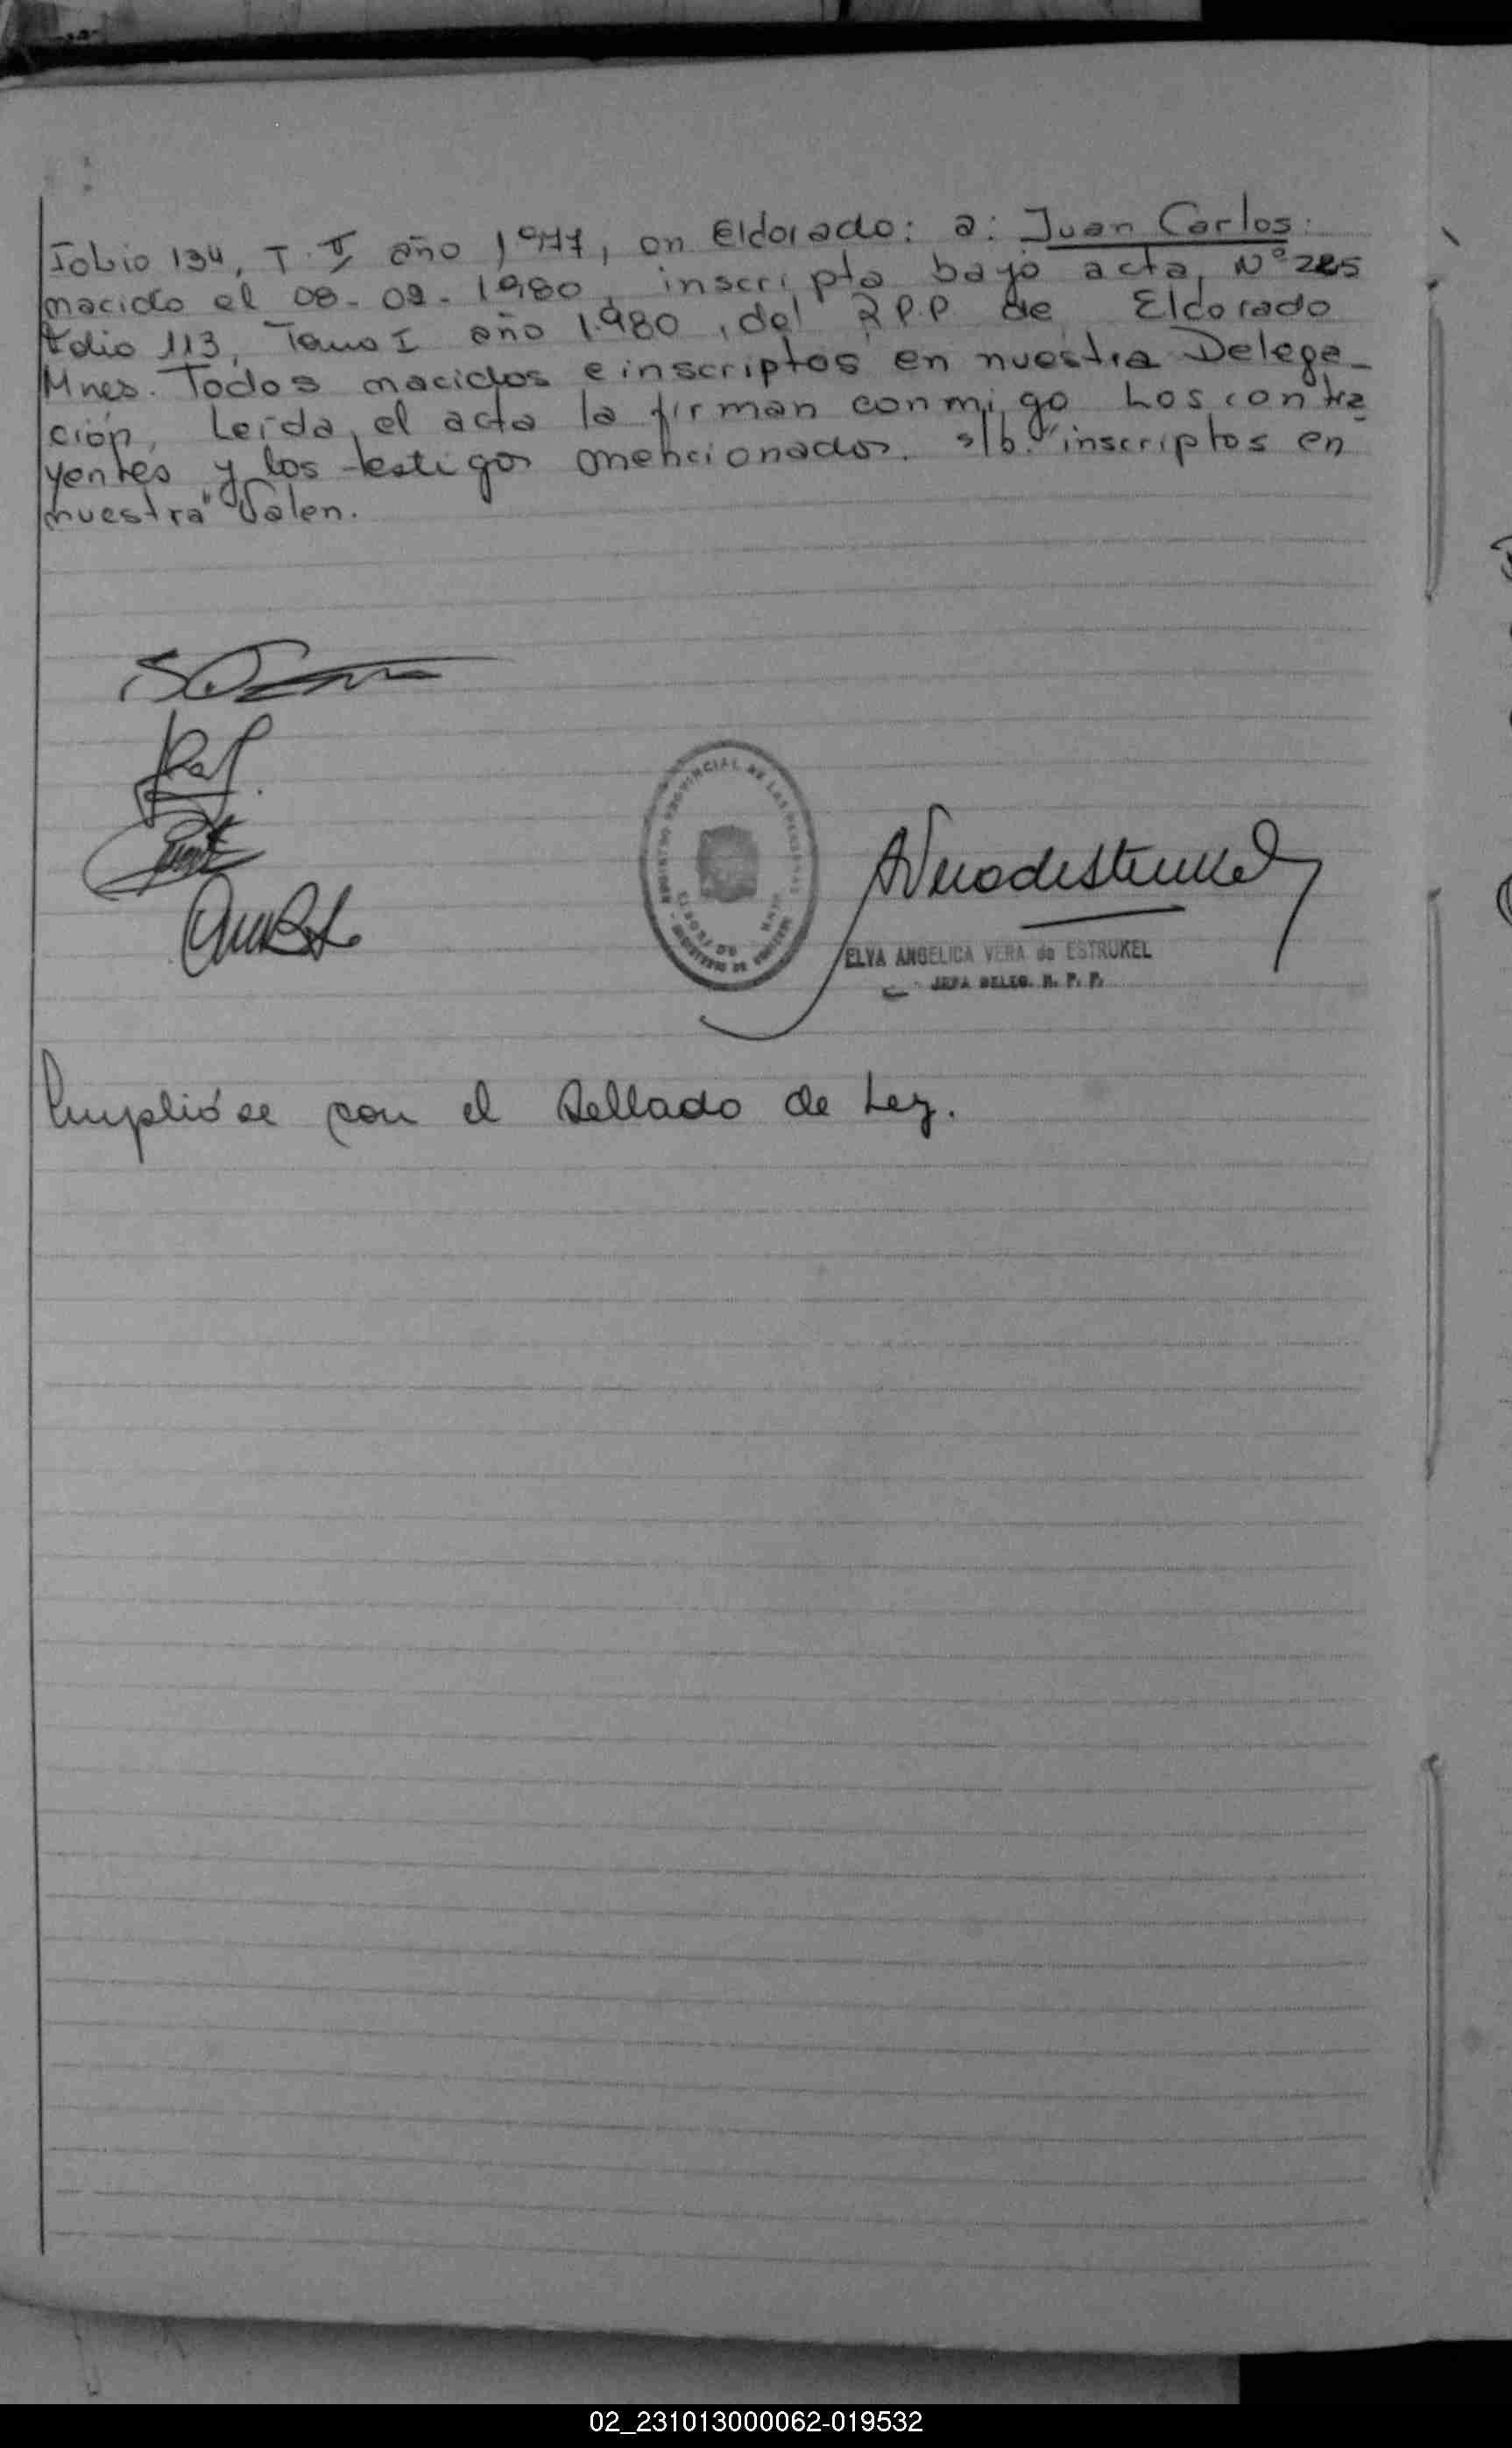 Folio 134, T. II, año 1977, en Eldorado: a: Juan Carlos:
nacido el 08-02-1980, inscripto bajo acta, Nº 225
folio 113, Tomo I año 1.980, del R.P.P. de Eldorado
Mnes. Todos nacidos e inscriptos en nuestra Delega-
ción, Leída, el acta la firman conmigo Los contra
yentes y los testigos mencionados. s/b. "inscriptos en
nuestra" Valen.
REGISTRO PROVINCIAL DE LAS PERSONAS
ELDORADO
MINISTERIO DE GOBIERNO
ELVA ANGELICA VERA de ESTRUKEL
JEFA DELEG. R. P. P.
Cumplióse con el Sellado de Ley.
02_231013000062-019532